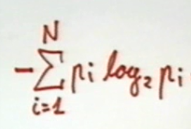 -∑_{i=1}^{N} p_i log_2 p_i